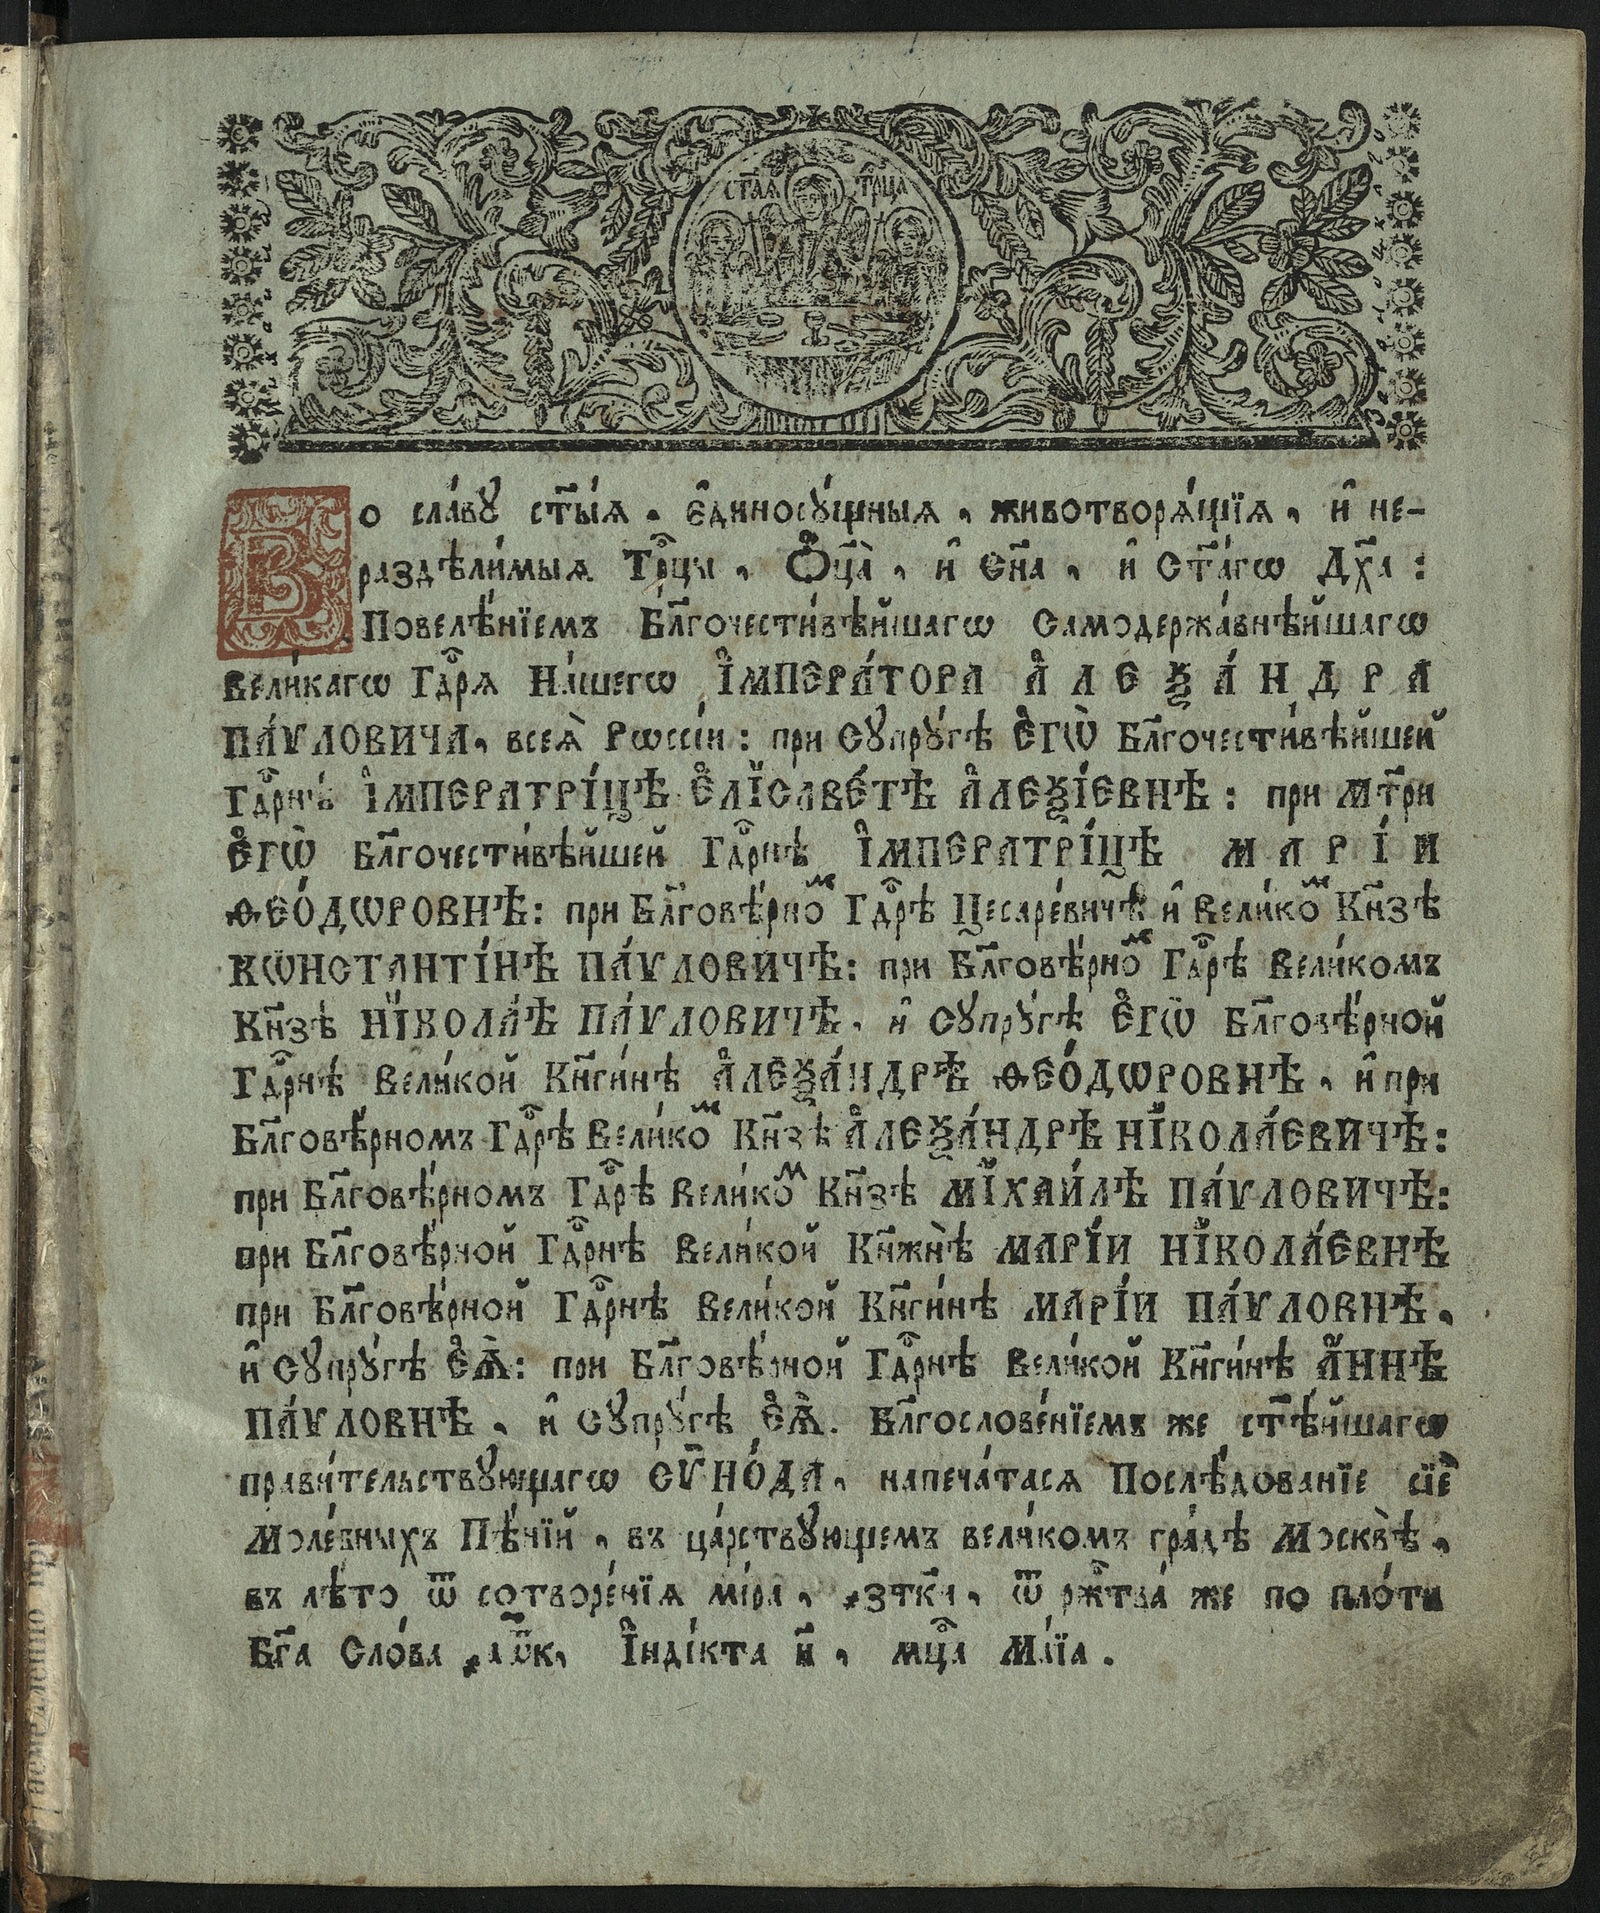 ст҃а́ѧ тр҇ца
Во сла́вꙋ ст҃ы́ѧ, є҆диносꙋ́щныѧ, животворѧ́щїѧ, и҆ не-
раздѣли́мыѧ Тр҇цы, Ѻ҆ц҃а̀, и҆ Сн҃а, и҆ Ст҃а́гѡ Дх҃а:
Повелѣ́нїемъ Бл҃гочести́вѣйшагѡ Самодержа́внѣйшагѡ
вели́кагѡ Гдⷭ҇рѧ На́шегѡ І҆МПЕРА́ТОРА А҆ЛЕѮА́НДРА
ПА́ѴЛОВИЧА, всеѧ̀ Рѡссі́и: при Сꙋпрꙋ́гѣ Є҆ГѠ̀ Бл҃гочести́вѣйшей
Гдⷭ҇рнѣ І҆МПЕРАТРІ́ЦѢ Є҆ЛІСАВЕ́ТѢ А҆ЛЕѮІ́ЕВНѢ: при Мт҃ри
Є҆ГѠ̀ Бл҃гочести́вѣйшей Гдⷭ҇рнѣ І҆МПЕРАТРІ́ЦѢ МАРІ́И
Ѳ҆ЕО́ДѠРОВНѢ: при Бл҃говѣ́рноⷨ Гдⷭ҇рѣ Цесаре́вичѣ и҆ Вели́коⷨ Кн҃зѣ
КѠНСТАНТІ́НѢ ПА́ѴЛОВИЧѢ: при Бл҃говѣ́рноⷨ Гдⷭ҇рѣ Вели́комъ
Кн҃зѣ НІКОЛА́Ѣ ПА́ѴЛОВИЧѢ, и҆ Сꙋпрꙋ́гѣ Є҆ГѠ̀ Бл҃говѣ́рной
Гдⷭ҇рнѣ Вели́кой Кн҃ги́нѣ А҆ЛЕѮА́НДРѢ Ѳ҆ЕО́ДѠРОВНѢ, и҆ при
Бл҃говѣ́рномъ Гдⷭ҇рѣ Вели́коⷨ Кн҃зѣ А҆ЛЕѮА́НДРѢ НІКОЛА́ЕВИЧѢ:
при Бл҃говѣ́рномъ Гдⷭ҇рѣ Вели́коⷨ Кн҃зѣ МІХАИ́ЛѢ ПА́ѴЛОВИЧѢ:
при Бл҃говѣ́рной Гдⷭ҇рнѣ Вели́кой Кн҃жнѣ̀ МАРІ́И НІКОЛА́ЕВНѢ
при Бл҃говѣ́рной Гдⷭ҇рнѣ Вели́кой Кн҃ги́нѣ МАРІ́И ПА́ѴЛОВНѢ,
и҆ Сꙋпрꙋ́гѣ Є҆Ѧ̀: при Бл҃говѣ́рной Гдⷭ҇рнѣ Вели́кой Кн҃ги́нѣ А҆́ННѢ
ПА́ѴЛОВНѢ, и҆ Сꙋпрꙋ́гѣ Є҆Ѧ̀. Бл҃гослове́нїемъ же ст҃ѣ́йшагѡ
прави́тельствꙋющагѡ СѴНО́ДА, напеча́тасѧ Послѣ́дованїе сїѐ
Моле́бныхъ Пѣ́нїй, въ ца́рствꙋющемъ вели́комъ гра́дѣ Москвѣ̀,
въ лѣ́то ѿ сотворе́нїѧ мі́ра, ҂зтк҃и, ѿ ржⷭ҇тва́ же по пло́ти
Бг҃а Сло́ва ҂аѿ҃к, І҆нді́кта и҃, мцⷭ҇а Ма́їа.